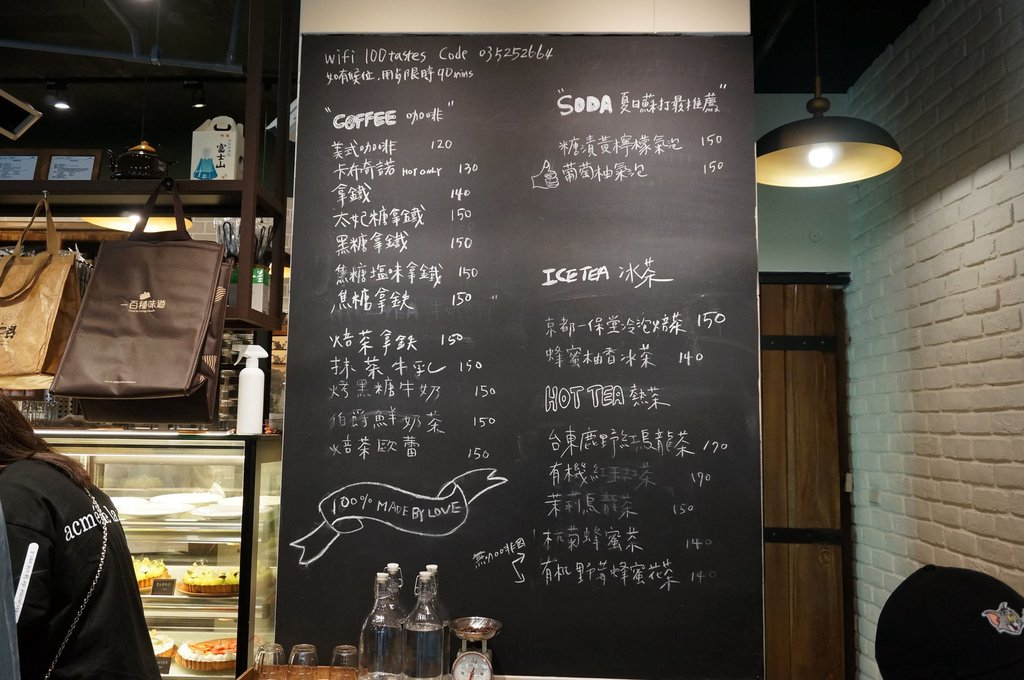 wifi 100tastes Code 035252664
如有候位,用餐限時90mins
"COFFEE 咖啡"
美式咖啡 120
卡布奇諾 HOT ONLY 130
拿鐵 140
太妃糖拿鐵 150
黑糖拿鐵 150
焦糖塩味拿鐵 150
焦糖拿鉄 150
焙茶拿鉄 150
抹茶牛乳 150
烤黑糖牛奶 150
伯爵鮮奶茶 150
焙茶歐蕾 150
100% MADE BY LOVE
"SODA 夏日蘇打最推薦"
糖漬黃檸檬氣泡 150
葡萄柚氣泡 150
ICE TEA 冰茶
京都一保堂冷泡焙茶 150
蜂蜜柚香冰茶 140
HOT TEA 熱茶
台東鹿野紅烏龍茶 170
有機紅玉紅茶 170
茉莉烏龍茶 150
杭菊蜂蜜茶 140
無咖啡因
有机野莓蜂蜜花茶 140
富士山
一百種味道
acm